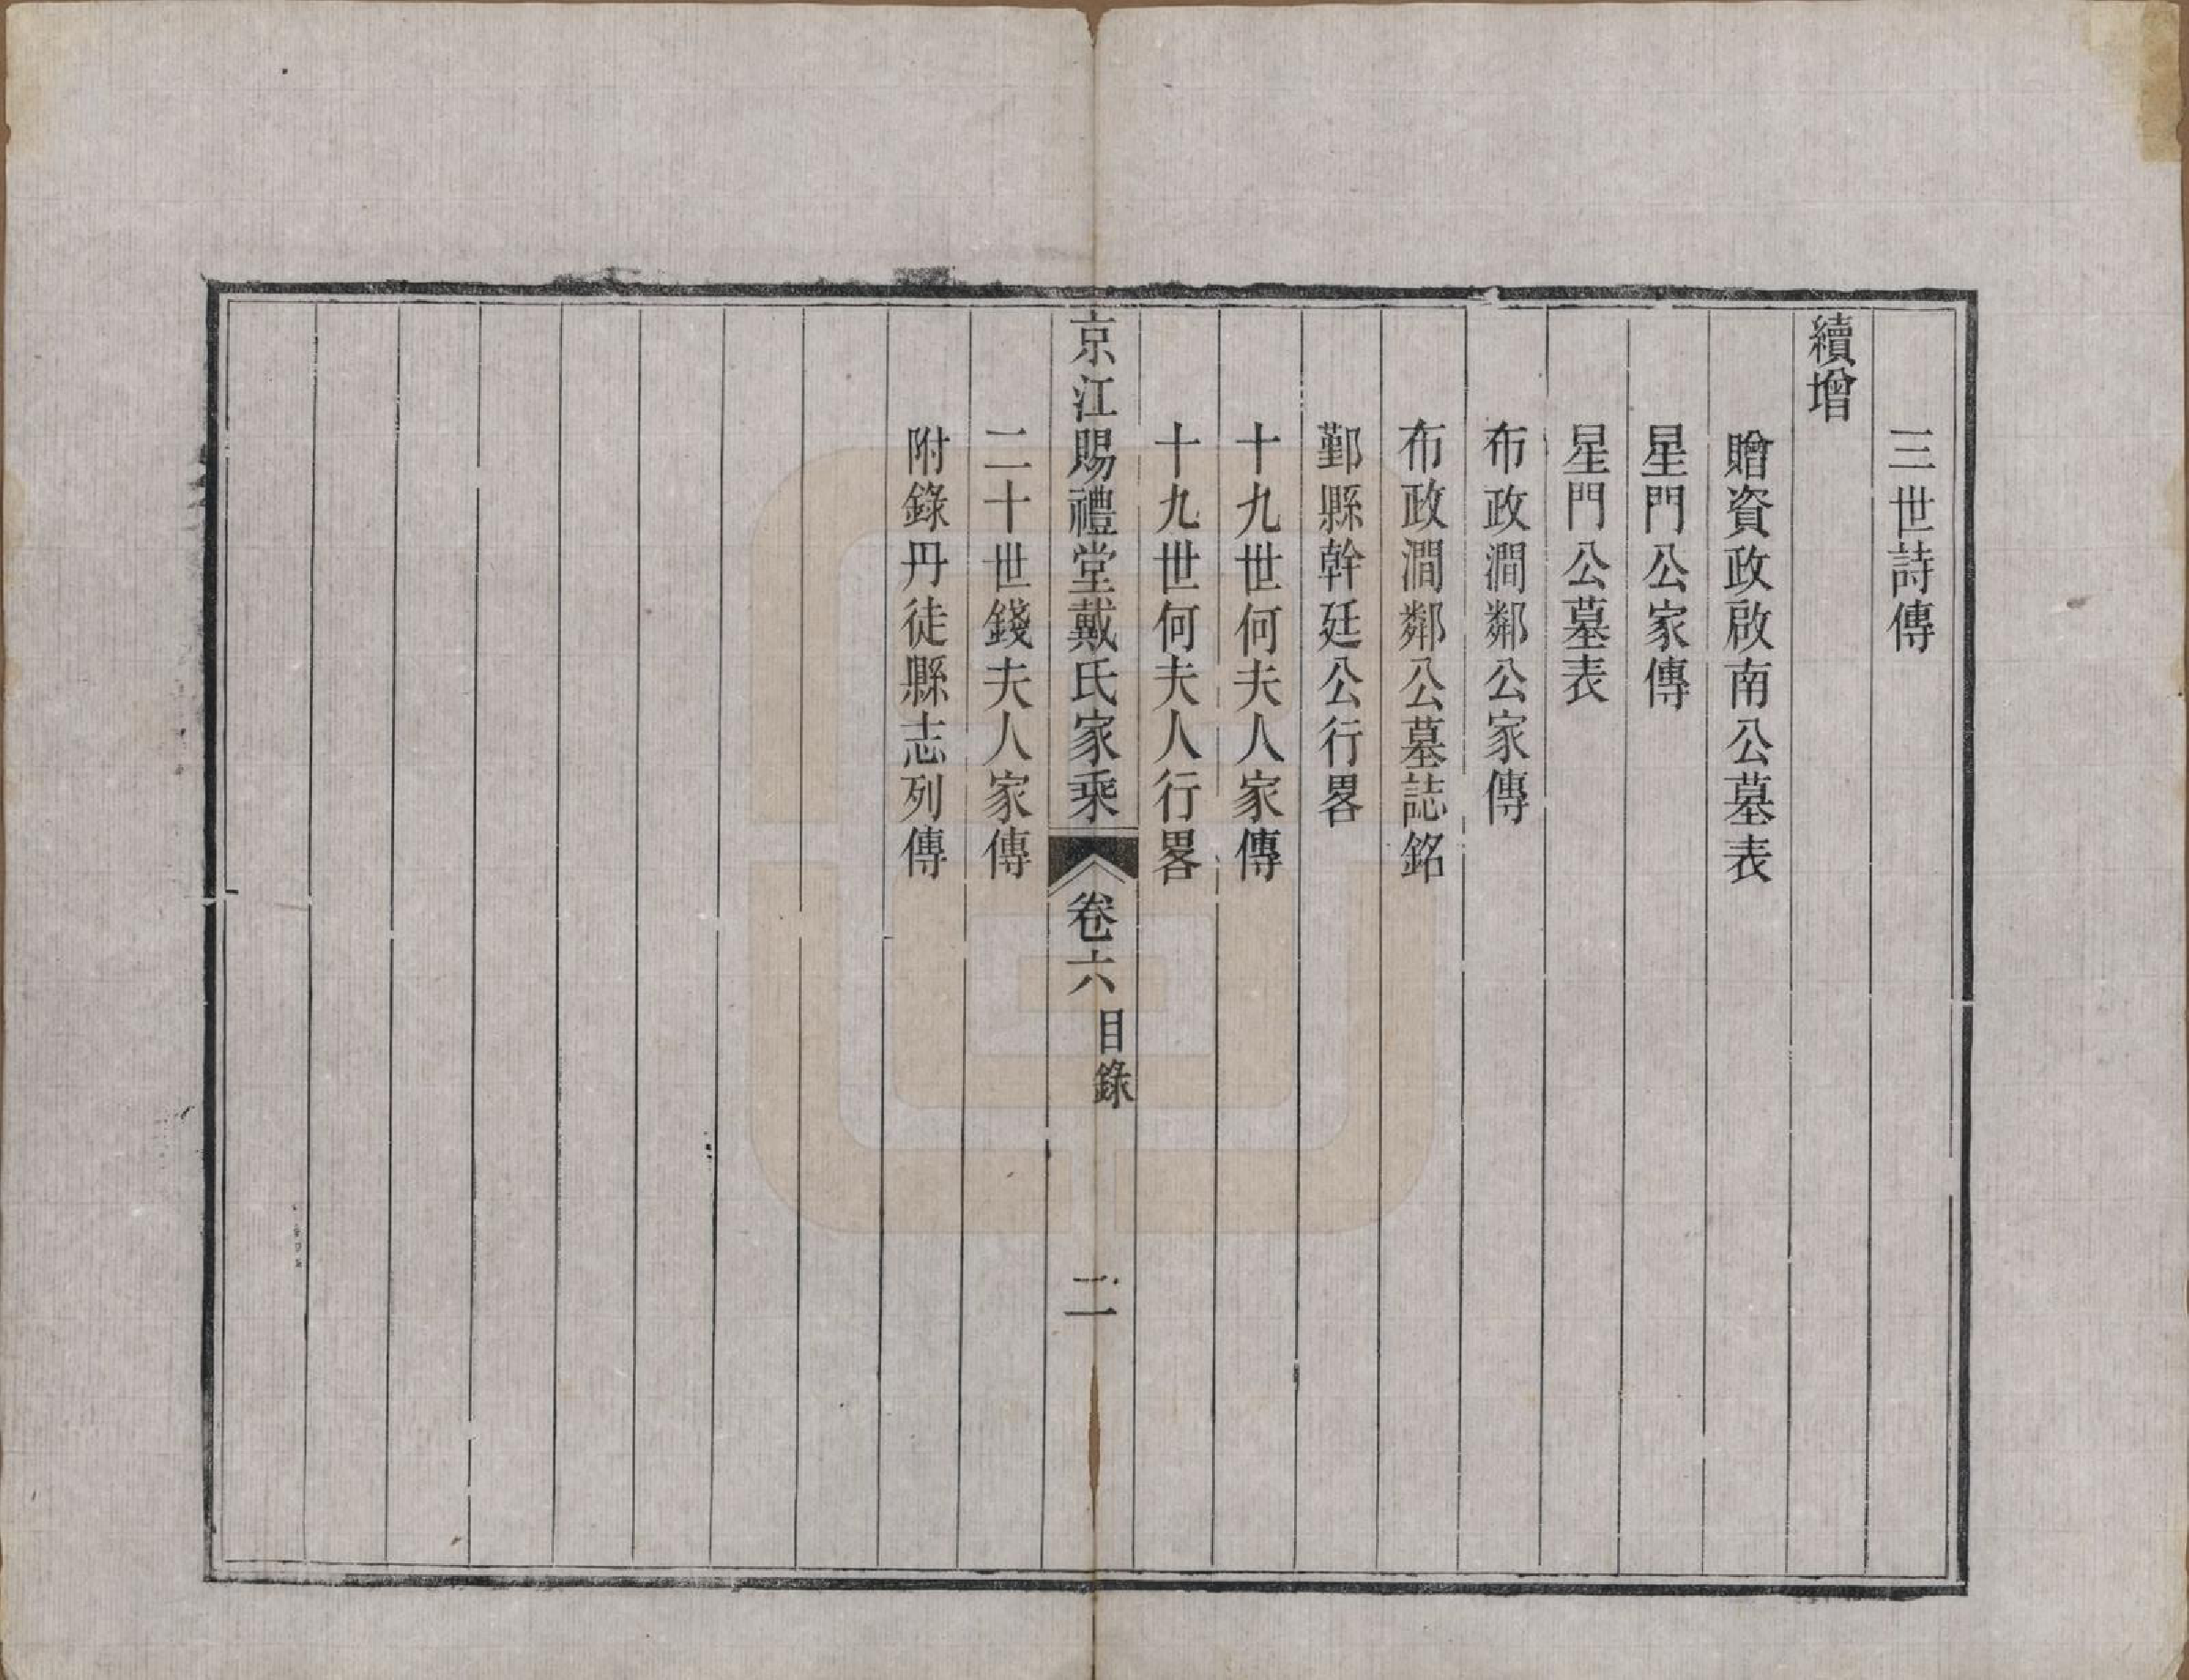 三世詩傳
續增
贈資政啟南公墓表
星門公家傳
星門公墓表
布政澗鄰公家傳
布政澗鄰公墓誌銘
鄞縣幹廷公行畧
十九世何夫人家傳
十九世何夫人行畧
京江賜禮堂戴氏家乘 卷六 目錄 二
二十世錢夫人家傳
附錄丹徒縣志列傳